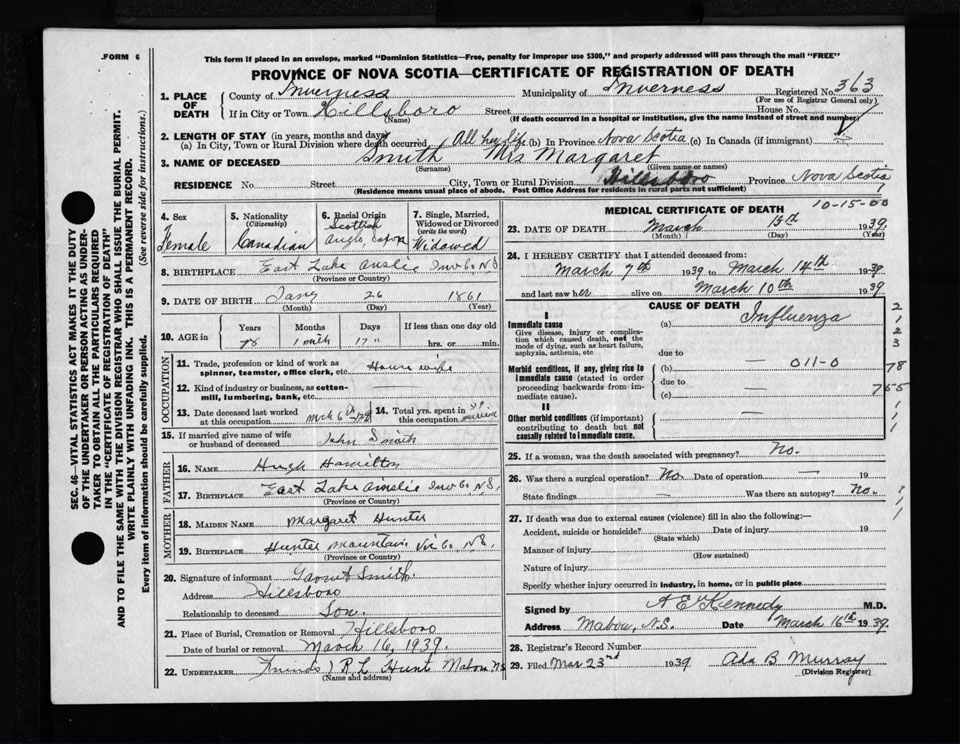 FORM 6
This form if placed in an envelope, marked "Dominion Statistics—Free, penalty for improper use $300," and properly addressed will pass through the mail "FREE"
PROVINCE OF NOVA SCOTIA—CERTIFICATE OF REGISTRATION OF DEATH
1. PLACE OF DEATH County of Inverness Municipality of Inverness Registered No. 363
(For use of Registrar General only)
If in City or Town Hillsboro Street House No.
(Name) (If death occurred in a hospital or institution, give the name instead of street and number)
2. LENGTH OF STAY (in years, months and days)
(a) In City, Town or Rural Division where death occurred All her life (b) In Province Nova Scotia (c) In Canada (if immigrant)
3. NAME OF DECEASED Smith Mrs Margaret
(Surname) (Given name or names)
RESIDENCE No. Street City, Town or Rural Division Hillsboro Province Nova Scotia
(Residence means usual place of abode. Post Office Address for residents in rural parts not sufficient)
SEC. 46—VITAL STATISTICS ACT MAKES IT THE DUTY
OF THE UNDERTAKER OR PERSON ACTING AS UNDER-
TAKER TO OBTAIN ALL THE PARTICULARS REQUIRED
IN THE "CERTIFICATE OF REGISTRATION OF DEATH"
AND TO FILE THE SAME WITH THE DIVISION REGISTRAR WHO SHALL ISSUE THE BURIAL PERMIT.
WRITE PLAINLY WITH UNFADING INK. THIS IS A PERMANENT RECORD.
Every item of information should be carefully supplied. (See reverse side for instructions.)
4. Sex Female
5. Nationality (Citizenship) Canadian
6. Racial Origin Scottish
7. Single, Married, Widowed or Divorced (write the word) Widowed
8. BIRTHPLACE East Lake Ainslie Inv Co NS
(Province or Country)
9. DATE OF BIRTH Jany 26 1861
(Month) (Day) (Year)
10. AGE in Years Months Days If less than one day old
78 1 month 17 " hrs. or min.
OCCUPATION
11. Trade, profession or kind of work as spinner, teamster, office clerk, etc. House wife
12. Kind of industry or business, as cotton-mill, lumbering, bank, etc.
13. Date deceased last worked at this occupation Mch 6th
14. Total yrs. spent in this occupation
15. If married give name of wife or husband of deceased John Smith
FATHER
16. NAME Hugh Hamilton
17. BIRTHPLACE East Lake Ainslie Inv Co, N.S.
(Province or Country)
MOTHER
18. MAIDEN NAME Margaret Hunter
19. BIRTHPLACE Hunter Mountain Vic Co, N.S.
(Province or Country)
20. Signature of informant Smith.
Address Hillsboro
Relationship to deceased Son.
21. Place of Burial, Cremation or Removal Hillsboro
Date of burial or removal March 16, 1939.
22. UNDERTAKER (Friends) R L Hunt Mabou NS
(Name and address)
MEDICAL CERTIFICATE OF DEATH 10-15-00
23. DATE OF DEATH March 15th 1939
(Month) (Day) (Year)
24. I HEREBY CERTIFY that I attended deceased from:
March 7th 1939 to March 14th 1939
and last saw her alive on March 10th 1939
CAUSE OF DEATH
I
Immediate cause (a) Influenza
Give disease, injury or complication which caused death, not the mode of dying, such as heart failure, asphyxia, asthenia, etc
due to
Morbid conditions, if any, giving rise to immediate cause (stated in order proceeding backwards from immediate cause).
(b) — 011-0
due to
(c) —
II
Other morbid conditions (if important) contributing to death but not causally related to immediate cause.
2
1
2
3
78
755
1
1
1
25. If a woman, was the death associated with pregnancy? No.
26. Was there a surgical operation? No. Date of operation — 19
State findings — Was there an autopsy? No.
27. If death was due to external causes (violence) fill in also the following:—
Accident, suicide or homicide? Date of injury 19
(State which)
Manner of injury
(How sustained)
Nature of injury
Specify whether injury occurred in industry, in home, or in public place
Signed by A E Kennedy M.D.
Address Mabou, N.S. Date March 16th 1939.
28. Registrar's Record Number
29. Filed Mar 23rd 1939 Ada B Murray
(Division Registrar)